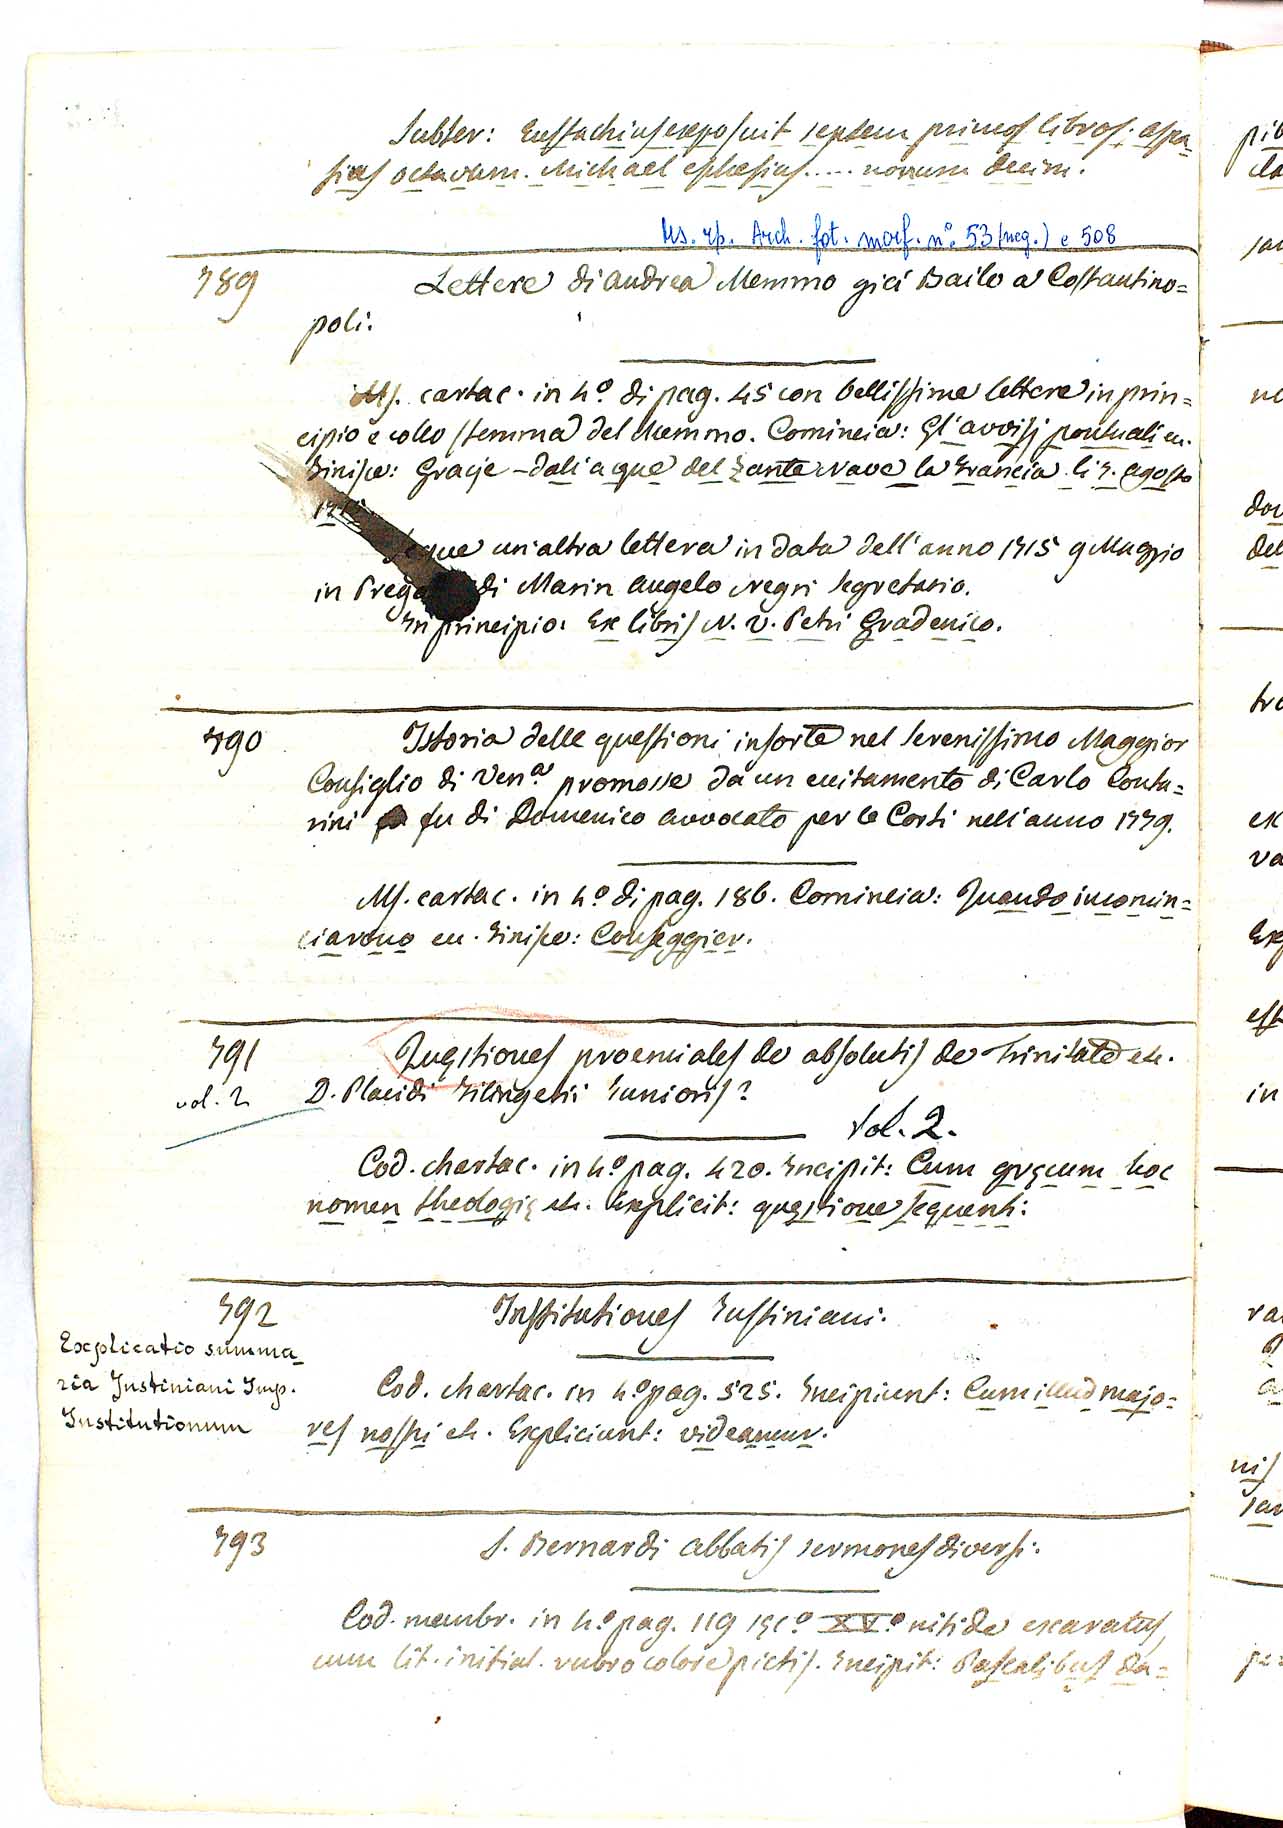 Subter: Eustachius exposuit septem primos libros; aspa-
sius octavum. Michael ephesius..... nonum decim.
Ms. rip. Arch. fot. morf. n.° 53 (neg.) e 508
789
Lettere di Andrea Memmo giài Bailo a Costantino=
poli.
Ms. cartac. in 4.º di pag. 45 con bellissime lettere in prin=
cipio e collo stemma del Memmo. Comincia: Gl'avvisj pontuali ec.
Finisce: Gracje - dall'aque del Zante Nave la Francia li 7. agosto
171
Segue un'altra lettera in data dell'anno 1715 9 Maggio
in Prega di Marin Angelo Negri Segretario.
In principio: Ex libris N. V. Petri Gradenico.
790
Istoria delle questioni insorte nel Serenissimo Maggior
Consiglio di Ven.ª promosse da un eccitamento di Carlo Conta=
rini fu di Domenico avvocato per le Corti nell'anno 1779.
Ms. cartac. in 4.º di pag. 186. Comincia: Quando incomin=
ciarono ec. Finisce: Conseggier.
791
vol. 2
Quęstiones proemiales de absolutis de Trinitate etc.
D. Placidi Filingerii Junioris?
Vol. 2.
Cod. chartac. in 4.º pag. 420. Incipit: Cum gręcum hoc
nomen theologię etc. Explicit: quęstione sequenti.
792
Explicatio summa-
ria Justiniani Imp.
Institutionum
Institutiones Justiniani.
Cod. chartac. in 4.º pag. 525. Incipiunt: Cum illud majo=
res nostri etc. Expliciunt: videamur.
793
S. Bernardi abbatis sermones diversi.
Cod. membr. in 4.º pag. 119 sęc.º XV.º nitide exaratus,
cum lit. initial. rubro colore pictis. Incipit: Pascalibus da=